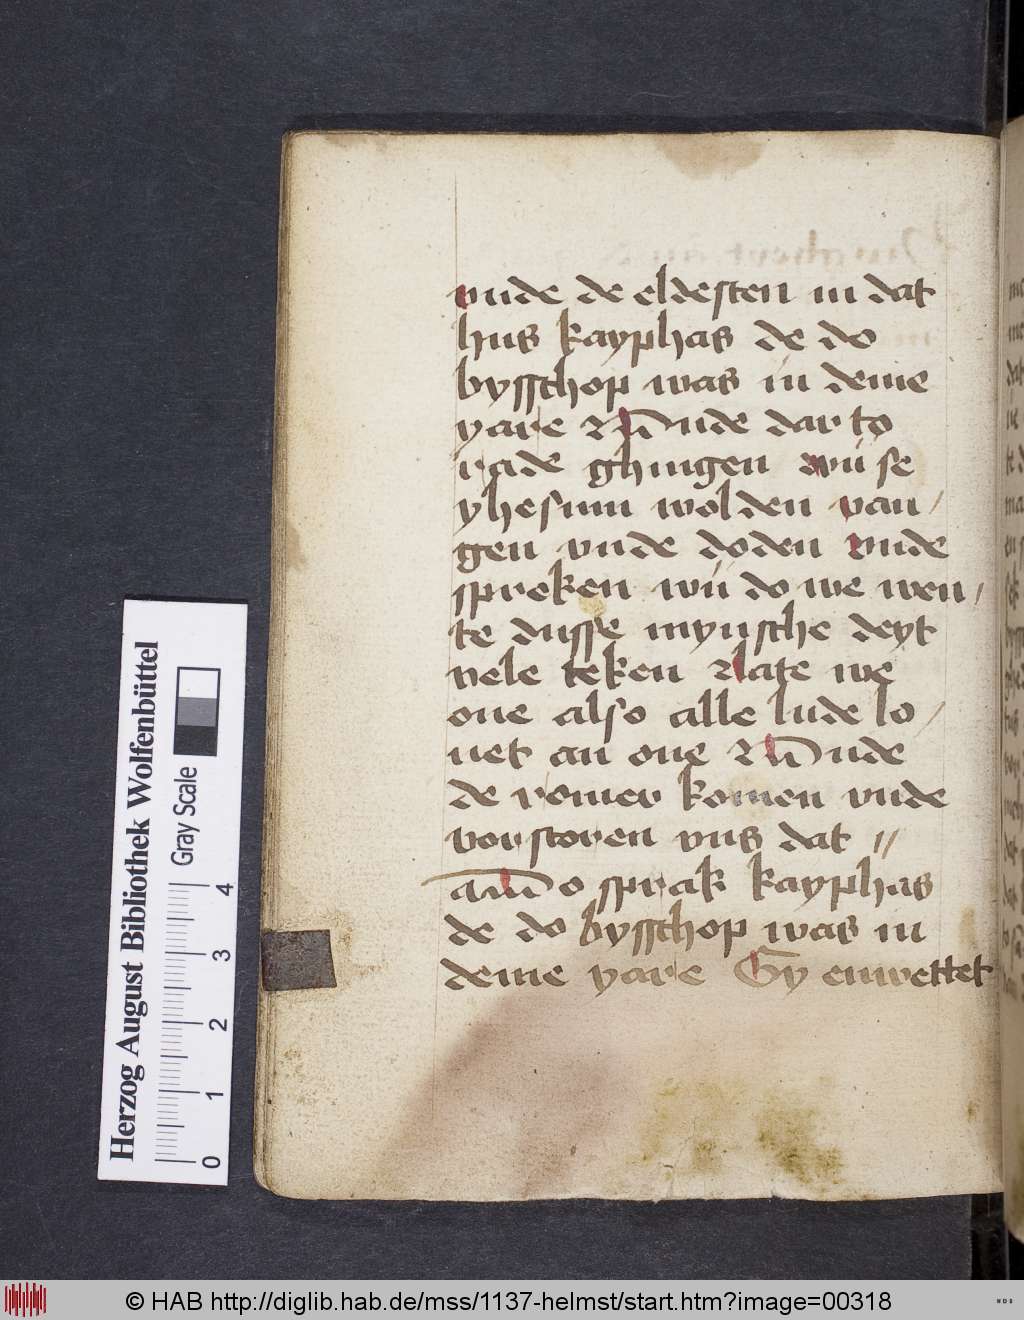 vnde de eldesten in dat
hus kayphas de do
bysschop was in deme
yare vnde dar to
rade ghingen wu se
yhesum wolden van/
gen vnde doden vnde
spreken wu do we wen/
te dusse mynsche deyt
vele teken late we
one also alle lude lo/
uet an one vnde
de romer komen vnde
vorstoren vns dat //
o sprak kayphas
de do bysschop was in
deme yare Gy enwettet
Herzog August Bibliothek Wolfenbüttel
Gray Scale
0 1 2 3 4
© HAB http://diglib.hab.de/mss/1137-helmst/start.htm?image=00318